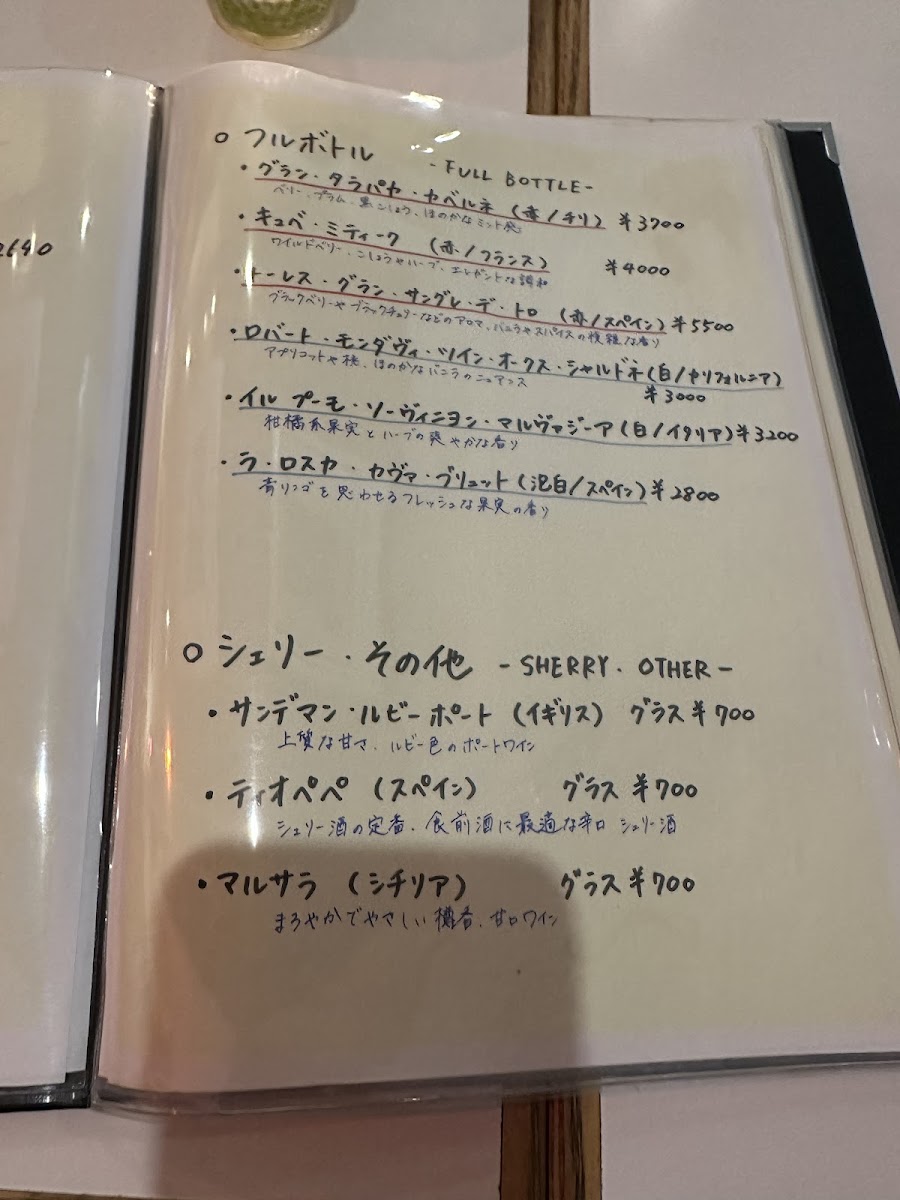 2640
○ フルボトル -FULL BOTTLE-
・グラン・タラパカ・カベルネ (赤/チリ) ¥3700
ベリー、プラム、黒こしょう、ほのかなミント
・キュベ・ミティーク (赤/フランス) ¥4000
ワイルドベリー、こしょうやハーブ、エレガントな調和
・トーレス・グラン・サングレ・デ・トロ (赤/スペイン) ¥5500
ブラックベリーやブラックチェリーなどのアロマ、バニラやスパイスの複雑な香り
・ロバート・モンダヴィ・ツイン・オークス・シャルドネ(白/カリフォルニア)
¥3000
アプリコットや桃、ほのかなバニラのニュアンス
・イル プーモ・ソーヴィニヨン・マルヴァジーア(白/イタリア)¥3200
柑橘系果実とハーブの爽やかな香り
・ラ・ロスカ・カヴァ・ブリュット(泡白/スペイン)¥2800
青リンゴを思わせるフレッシュな果実の香り
○ シェリー・その他 -SHERRY. OTHER-
・サンデマン・ルビーポート (イギリス) グラス¥700
上質な甘さ、ルビー色のポートワイン
・ティオペペ (スペイン) グラス¥700
シェリー酒の定番、食前酒に最適な辛口 シェリー酒
・マルサラ (シチリア) グラス¥700
まろやかでやさしい樽香、甘口ワイン